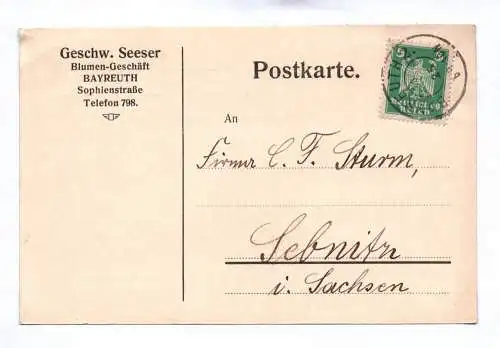 Geschw. Seeser
Blumen-Geschäft
BAYREUTH
Sophienstraße
Telefon 798.
Postkarte.
5
An
Firma C. F. Sturm,
Sebnitz
i. Sachsen